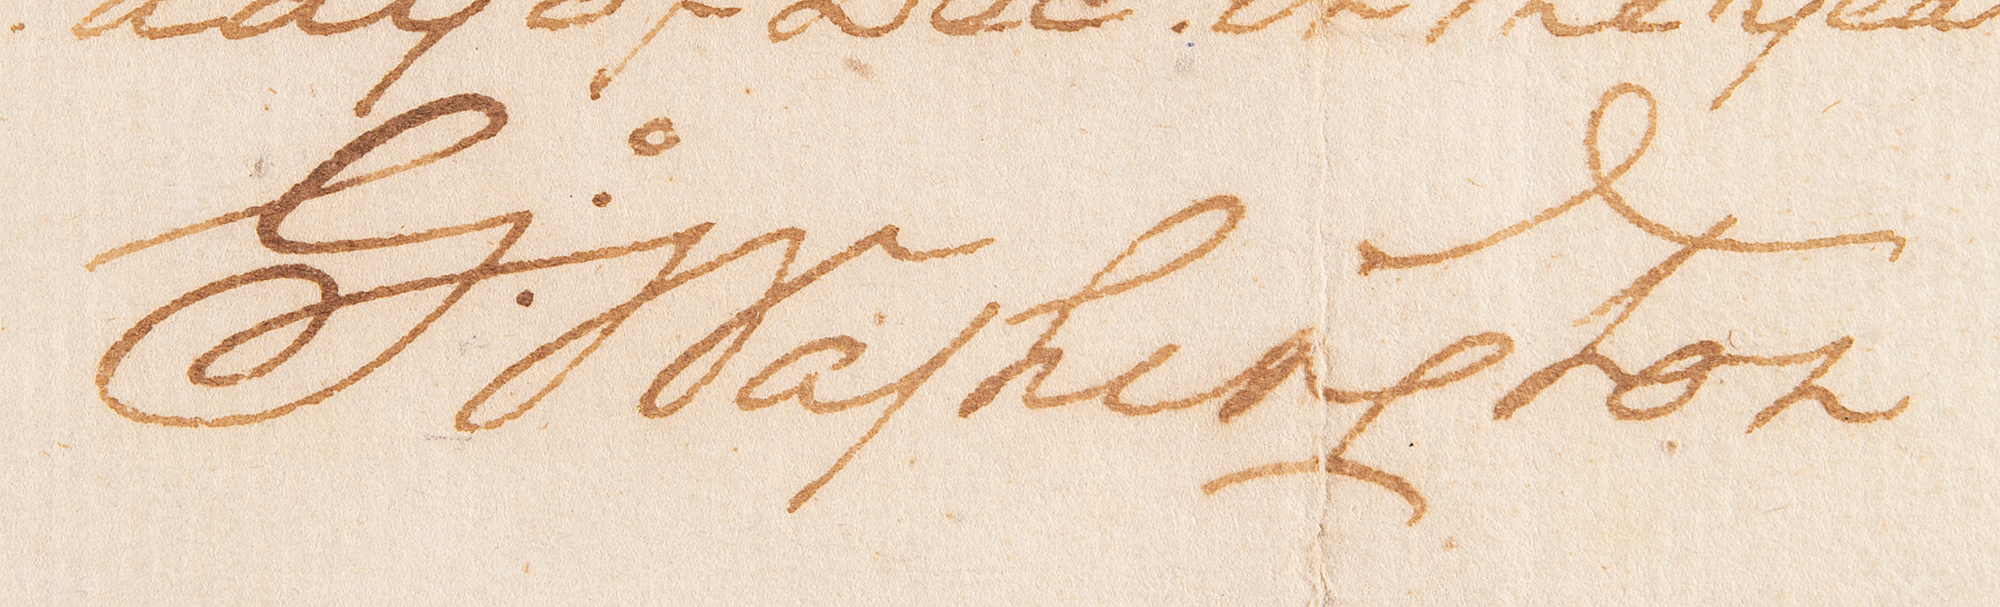 . day of Dec. in the year
Go: Washington